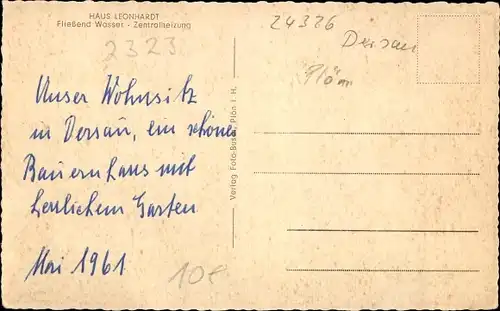 HAUS LEONHARDT
Fließend Wasser - Zentralheizung
2323
Unser Wohnsitz
in Dersau, ein schönes
Bauernhaus mit
herrlichem Garten
Mai 1961
10e
Verlag Foto-Buse, Plön i. H.
24326
Dersau
Plön